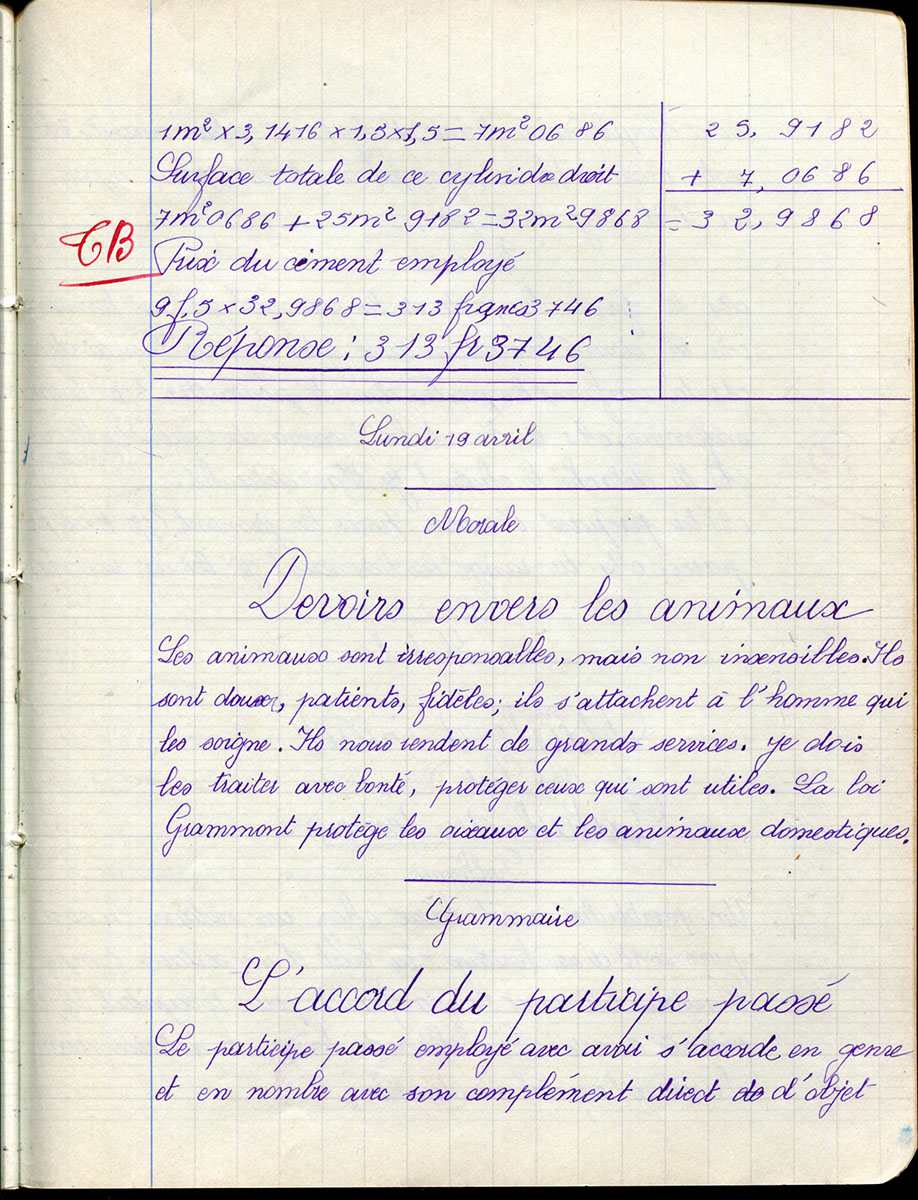 1m² x 3,1416 x 1,5 x 1,5 = 7m²06 86
Surface totale de ce cylindre droit
7m²0686 + 25m² 9182 = 32m²9868
TB
Prix du ciment employé
9f,5 x 32,9868 = 313 francs3746
Réponse : 313 fr3746
25,9182
+ 7,0686
= 32,9868
Lundi 19 avril
Morale
Devoirs envers les animaux
Les animaux sont irresponsables, mais non insensibles. Ils
sont doux, patients, fidèles; ils s'attachent à l'homme qui
les soigne. Ils nous rendent de grands services. Je dois
les traiter avec bonté, protéger ceux qui sont utiles. La loi
Grammont protège les oiseaux et les animaux domestiques.
Grammaire
L'accord du participe passé
Le participe passé employé avec avoir s'accorde en genre
et en nombre avec son complément direct d'objet